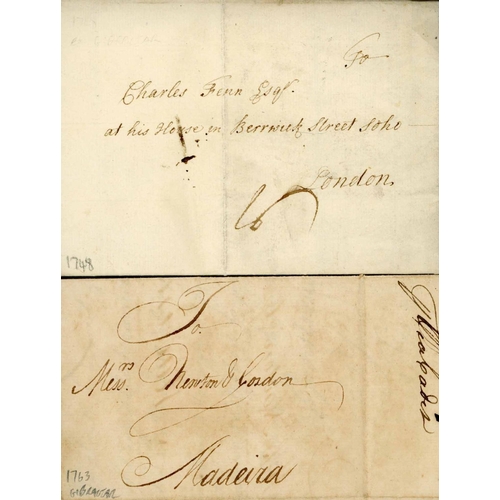 1748
To
Charles Fenn Esqr.
at his House in Berrwick Street Soho
London
1748
To
Messrs. Newton & Gordon
Madeira
1763
GIBRALTAR